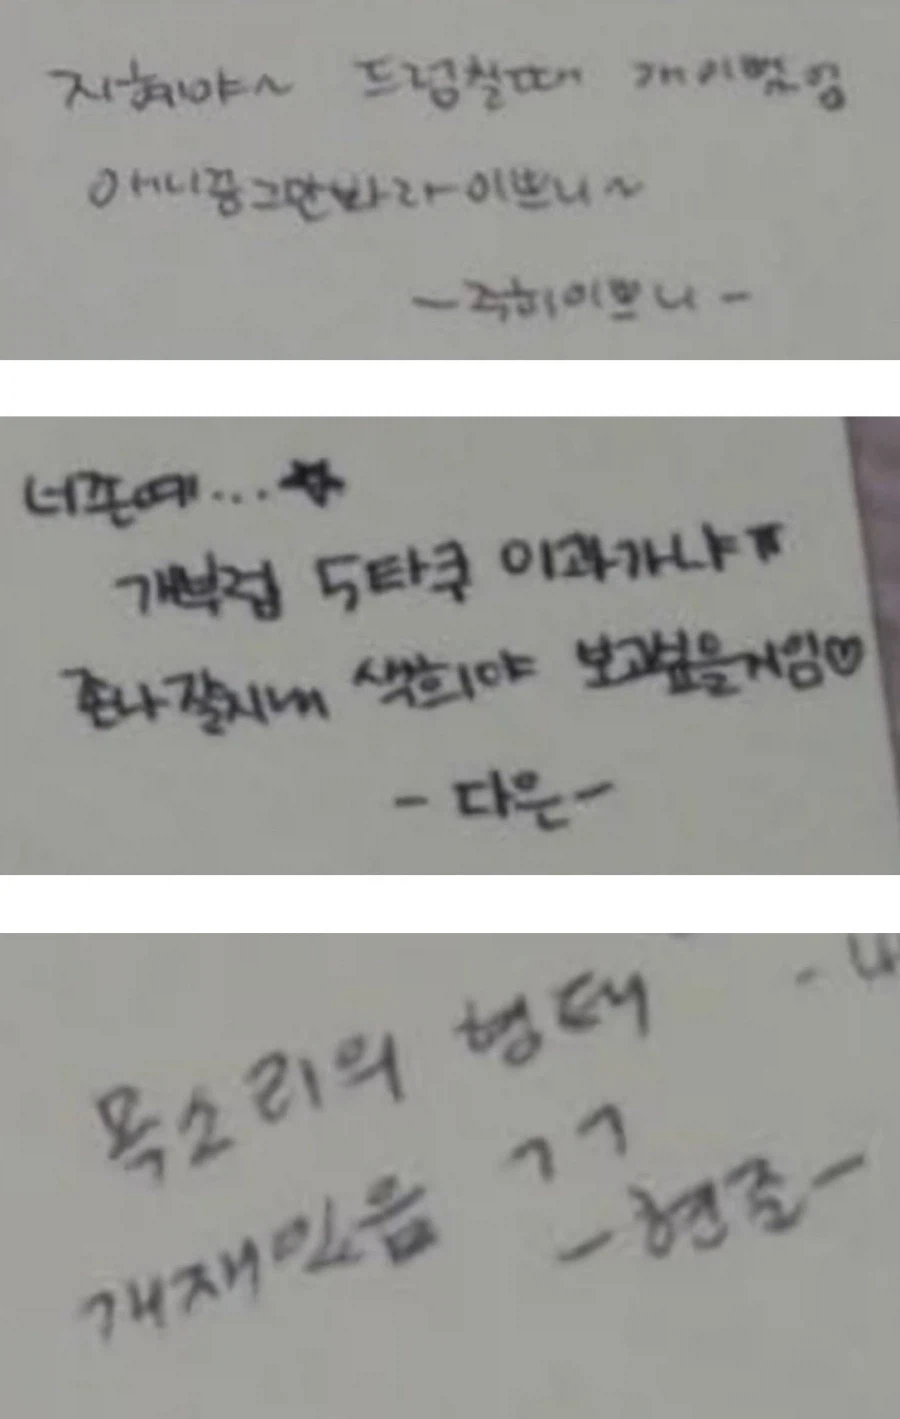 지혜야~ 드럼칠때 개이쁨임
애니쫌그만봐라이쁘니~
이쁘니-
너쫀예...☆
개부럽 5타쿠 이과가냐ㅠ
존나잘지내 색희야 보고싶을거임♡
- 다은 -
목소리의 형태
개재밌음 ㄱㄱ
- 현준 -